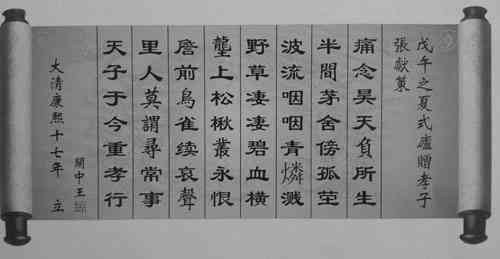 戊午之夏式廬贈孝子
張献
痛念昊天負所生
半間茅舍傍孤茔
波流咽咽青燐溅
野草凄凄碧血橫
壟上松楸叢永恨
詹前烏雀续哀聲
里人莫謂尋常事
天子于今重孝行
大清康熙十七年 關中王 立